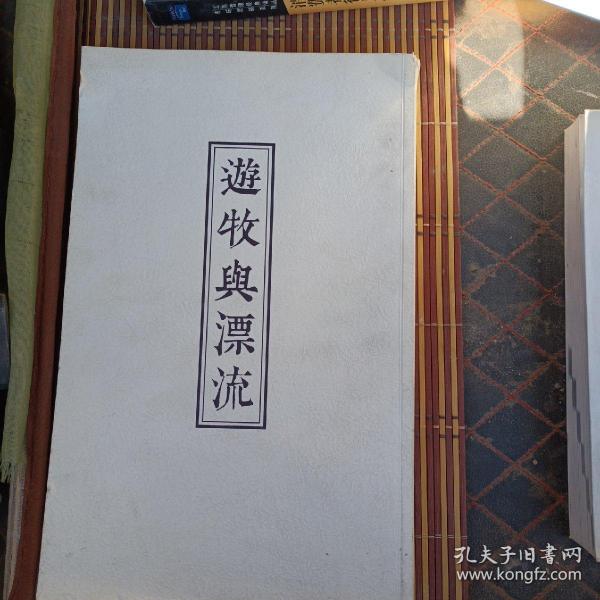 遊牧與漂流
孔夫子旧書网
www.kongfz.com